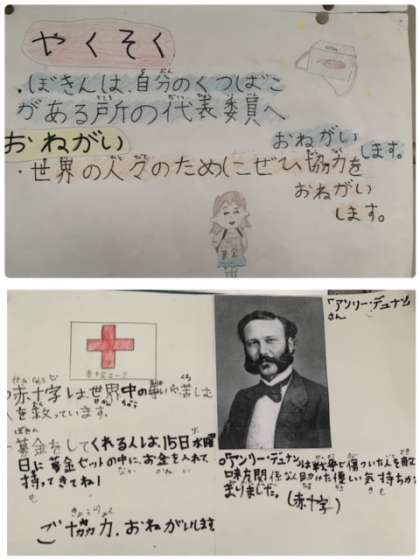 やくそく
・ぼきんは、自分のくつばこ
がある所の代表委員へ
おねがいします。
おねがい
・世界の人々のためにぜひ協力を
おねがい
します。
募金
赤十字マーク
赤十字は、世界中の
人を救っています。
募金をしてくれる人は、15日水曜
日に募金セットの中に、お金を入れて、
持ってきてね!
ご協力、おねがいします
アンリー・デュナン
さん
○アンリー・デュナンは戦争で傷ついた人を敵
味方関係なく助けた優しい気持ちから
まりました。(赤十字)